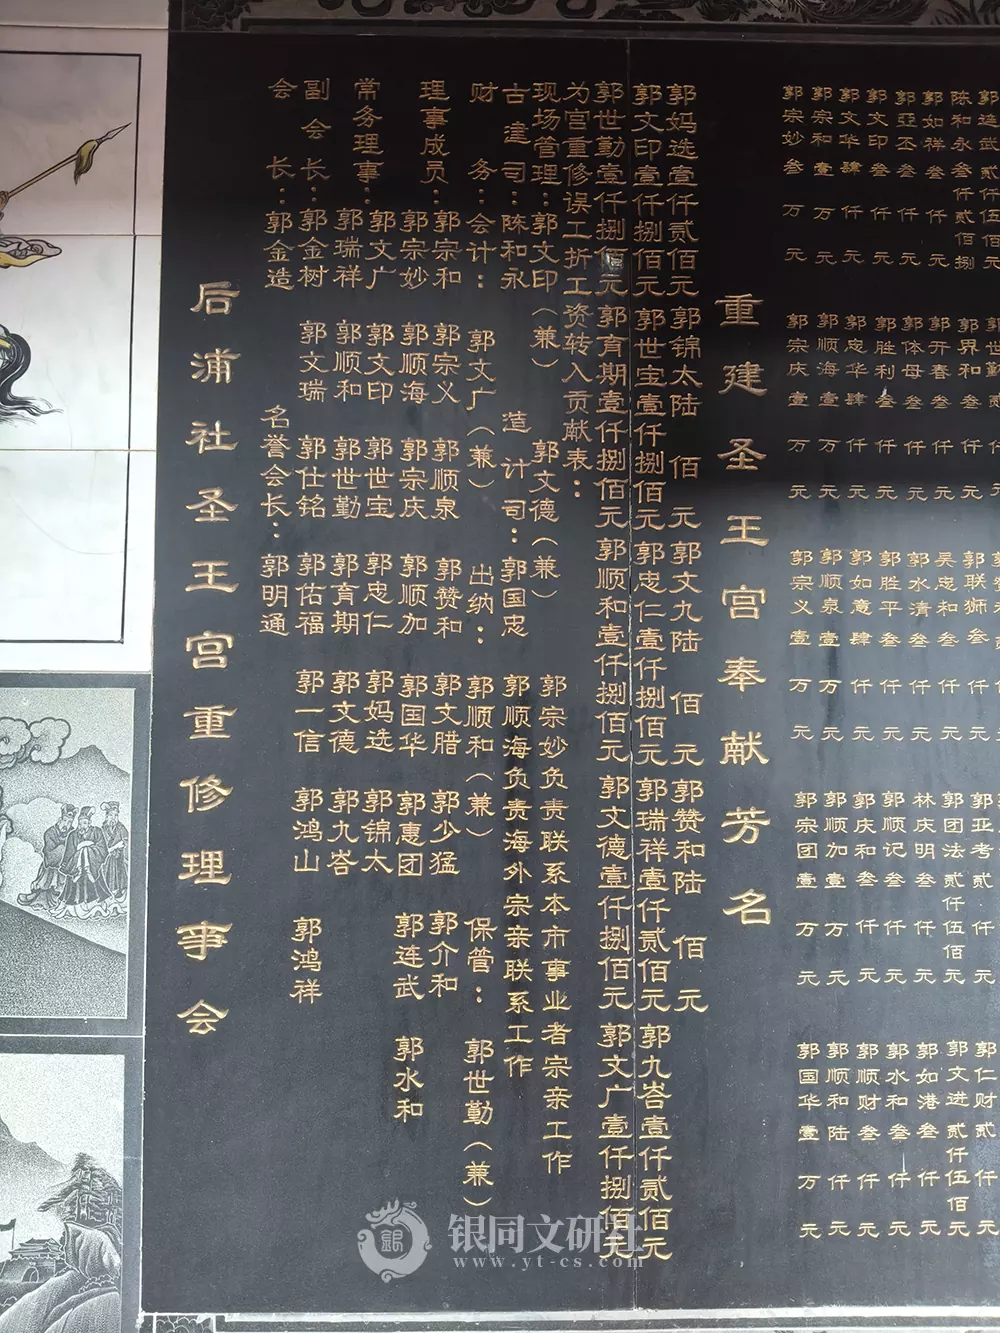 后浦社圣王宫重修理事会
会长：郭金造 名誉会长：郭明通
副会长：郭金树 郭文瑞 郭仕铭 郭佑福 郭一信 郭鸿山 郭鸿祥
常务理事：郭瑞祥 郭顺和 郭世勤 郭育期 郭文德 郭九峇
郭文广 郭文印 郭世宝 郭忠仁 郭妈选 郭锦太
理事成员：郭宗妙 郭顺海 郭宗庆 郭顺加 郭国华 郭惠团 郭连武 郭水和
郭宗和 郭宗义 郭顺泉 郭赞和 郭文腊 郭少猛 郭介和
财务：会计：郭文广（兼） 出纳：郭顺和（兼） 保管：郭世勤（兼）
古建司：陈和永 造计司：郭国忠 郭顺海负责海外宗亲联系工作
现场管理：郭文印（兼） 郭文德（兼） 郭宗妙负责联系本市事业者宗亲工作
为宫重修误工折工资转入贡献表：
郭世勤壹仟捌佰元 郭育期壹仟捌佰元 郭顺和壹仟捌佰元 郭文德壹仟捌佰元 郭文广壹仟捌佰元
郭文印壹仟捌佰元 郭世宝壹仟捌佰元 郭忠仁壹仟捌佰元 郭瑞祥壹仟贰佰元 郭九峇壹仟贰佰元
郭妈选壹仟贰佰元 郭锦太陆佰元 郭文九陆佰元 郭赞和陆佰元
重建圣王宫奉献芳名
郭宗妙叁万元 郭宗庆壹万元 郭宗义壹万元 郭宗团壹万元 郭国华壹万元
郭宗和壹万元 郭顺海壹万元 郭顺泉壹万元 郭顺加壹万元 郭顺和陆仟元
郭文华肆仟元 郭忠华肆仟元 郭如意肆仟元 郭庆和叁仟元 郭顺财叁仟元
郭文印叁仟元 郭胜利叁仟元 郭胜平叁仟元 郭顺记叁仟元 郭水和叁仟元
郭亞丕叁仟元 郭体母叁仟元 郭水清叁仟元 林庆明叁仟元 郭如港叁仟元
郭如祥叁仟元 郭开春叁仟元 吴忠和叁仟元 郭团法贰仟伍佰元 郭文进贰仟伍佰元
陈和永贰仟贰佰捌 郭界和 郭联狮 郭亚考贰仟元 郭仁财贰仟元
郭连武贰仟伍佰元
银同文研社
www.yt-cs.com